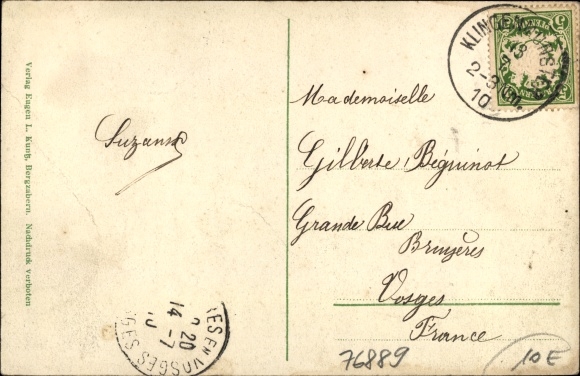 Verlag Eugen L. Kuntz, Bergzabern. Nachdruck verboten
Suzanne
Mademoiselle
Gilberte Béguinot
Grande Rue
Bruyères
Vosges
France
2-3
10
20
14-7
VOSGES
76889
10E
5